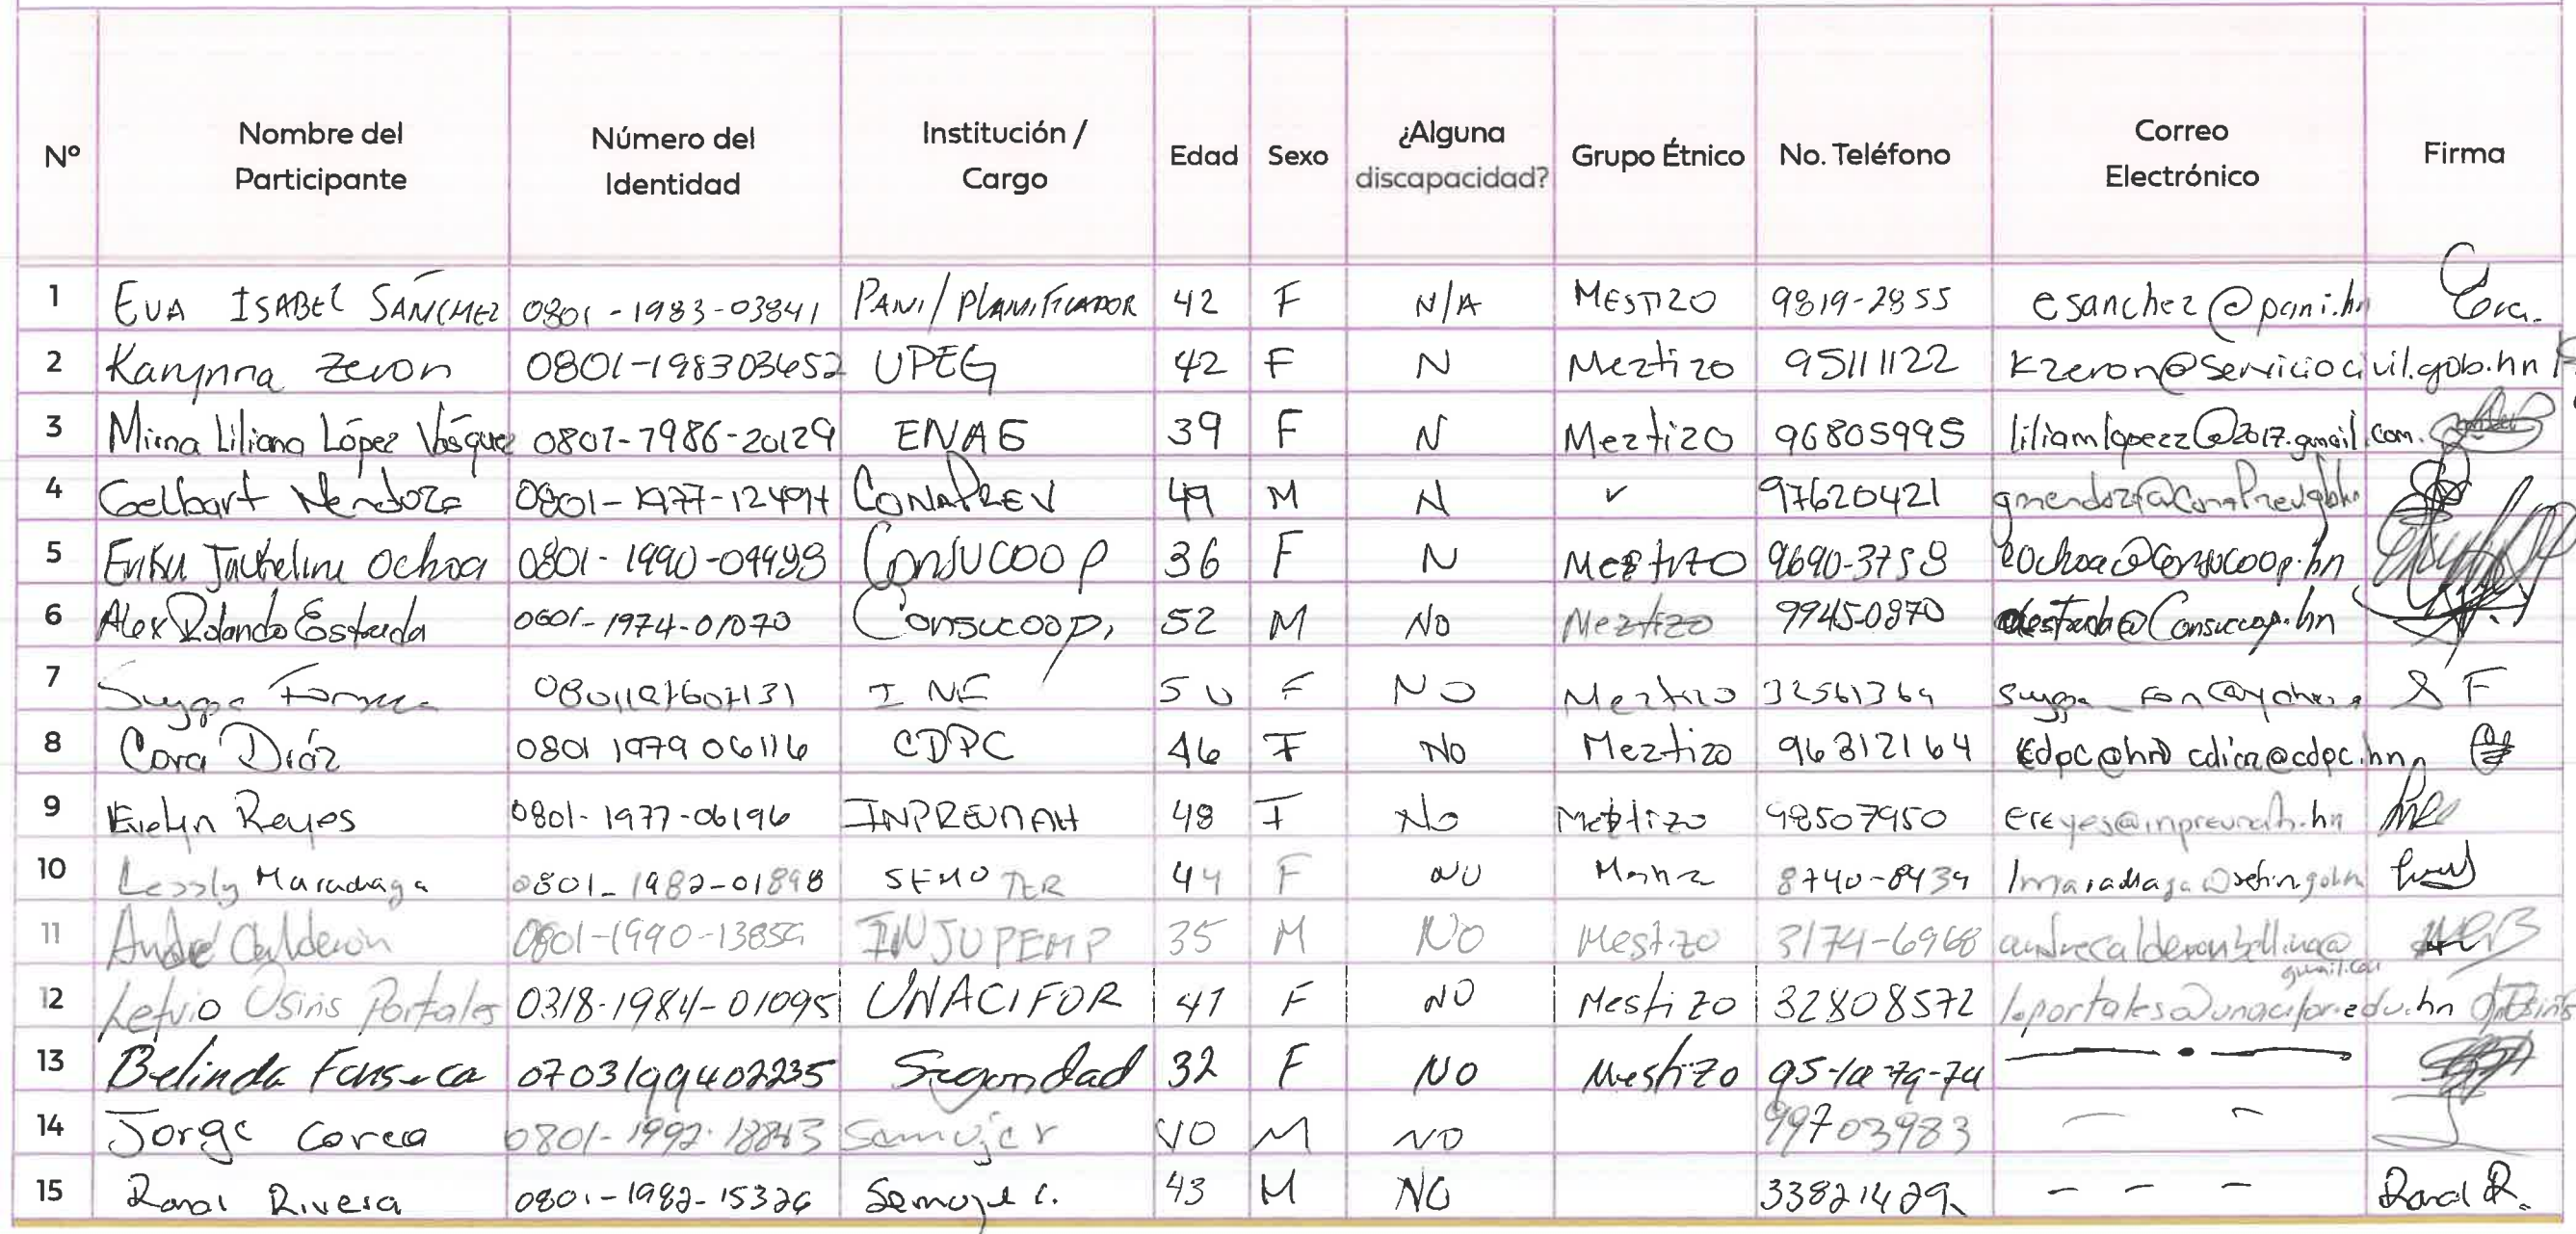 Nº Nombre del Participante Número del Identidad Institución / Cargo Edad Sexo ¿Alguna discapacidad? Grupo Étnico No. Teléfono Correo Electrónico Firma
1 EVA ISABEL SÁNCHEZ 0801-1983-03841 PANI/PLANIFICADOR 42 F N/A MESTIZO 9819-2855 esanchez@pani.hn Eva.
2 Karynna Zeron 0801-198303652 UPEG 42 F N Meztizo 95111122 Kzeron@serviciocivil.gob.hn
3 Mirna Liliana López Vásquez 0801-1986-20129 ENAG 39 F N Meztizo 96805995 liliamlopezz@2017.gmail.com.
4 Gelbart Mendoza 0801-1977-12494 CONAPREV 49 M N ✓ 97620421
5 Erika Jackeline Ochoa 0801-1990-04993 Consucoop 36 F N Meztizo 9690-3758 eochoa@consucoop.hn
6 Alex Rolando Estrada 0601-1974-01070 Consucoop, 52 M No Meztizo 9945-0870
7 INE 50 F NO Meztizo 32561369 S F
8 Cora Díaz 0801 1979 06116 CDPC 46 F No Meztizo 96312164 cdiaz@cdpc.hn
9 Evelyn Reyes 0801-1977-06196 INPREUNAH 48 F No Meztizo 98507950 ereyes@inpreunah.hn
10 Lessly Maradiaga 0801-1982-01898 44 F NO 8740-8439
11 André Calderón 0801-1990-13859 INJUPEMP 35 M No Mestizo 3174-6968
gmail.com
12 Osiris Portales 0318-1984-01095 UNACIFOR 41 F NO Mestizo 32808572 l.portales@unacifor.edu.hn
13 Belinda Fonseca 0703199402235 Seguridad 32 F NO Mestizo
14 Jorge Correa Semujer M NO 99703983
15 Rivera 0801-1982-15326 Semujer. 43 M NO 33821429